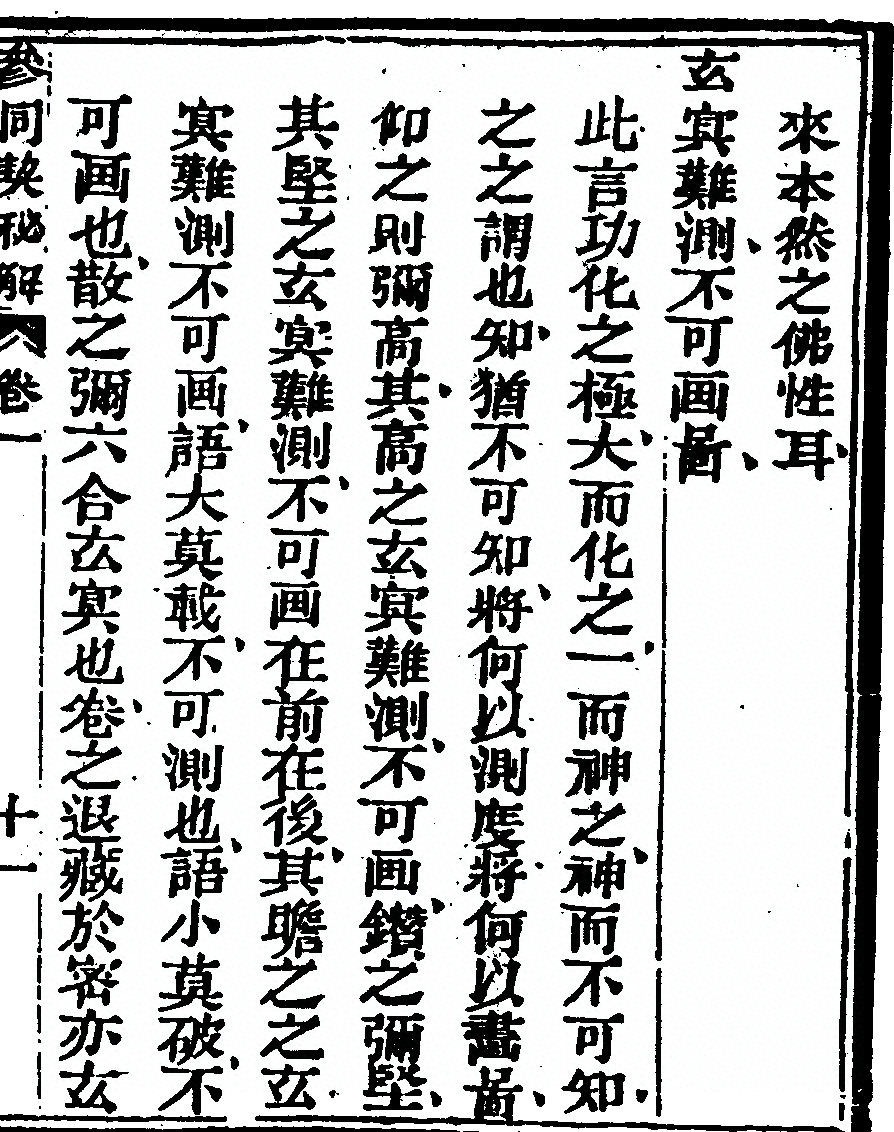 來本然之佛性耳
玄㝠難測不可画啚
此言功化之極大而化之一而神之神而不可知
之之謂也知猶不可知將何以測度將何以畫啚
仰之則彌高其高之玄㝠難測不可画鑽之彌堅
其堅之玄㝠難測不可画在前在後其瞻之之玄
㝠難測不可画語大莫載不可測也語小莫破不
可画也散之彌六合玄㝠也卷之退藏於密亦玄
參同契秘解 卷一 十一